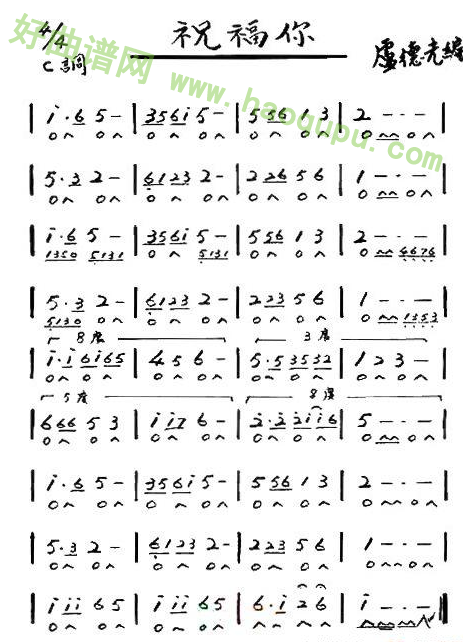 4/4 祝福你
C調 盧德先編
好曲谱网
www.haoqupu.com
| i·6 5 – | 3561 5 – | 5 56 1 3 | 2 – · – |
| 5·3 2 – | 6123 2 – | 2 26 5 6 | 1 – · – |
| i·6 5 – | 356i 5 – | 5 56 1 3 | 2 – · – |
1350 5131 5131 4676
| 5·3 2 – | 6123 2 – | 2 23 5 6 | 1 – · – |
5130 1353
8度 3度
| i·i 6i65 | 4 5 6 – | 5·5 3532 | 1 2 3 – |
5度 8度
| 6 66 5 3 | i i7 6 – | 2·2 2ii6 | 5 – · – |
| i·6 5 – | 356i 5 – | 5 56 1 3 | 2 – · – |
| 5·3 2 – | 6123 2 – | 2 23 5 6 | 1 – · – |
| i ii 6 5 | i ii 6 5 | 6·i 2 6 | i – · – |